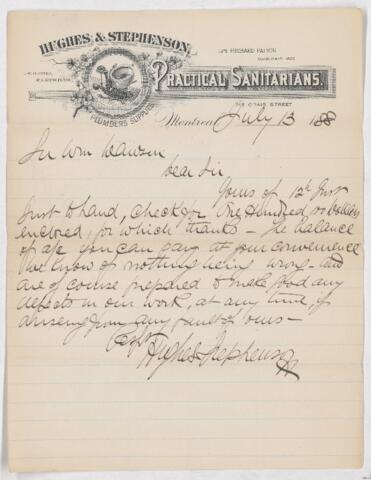 HUGHES & STEPHENSON,
PRACTICAL SANITARIANS.
PLUMBERS SUPPLIES
CRAIG STREET
Montreal July 13 188
Sir Wm Dawson
Dear Sir
Yours of 12th Inst
Just to hand, check for One Hundred dollars
enclosed, for which thanks - The balance
of a/c you can pay at your convenience
We know of nothing being wrong - and
are of course prepared to make good any
defects in our work, at any time, if
arising from any fault of ours -
Hughes & Stephenson